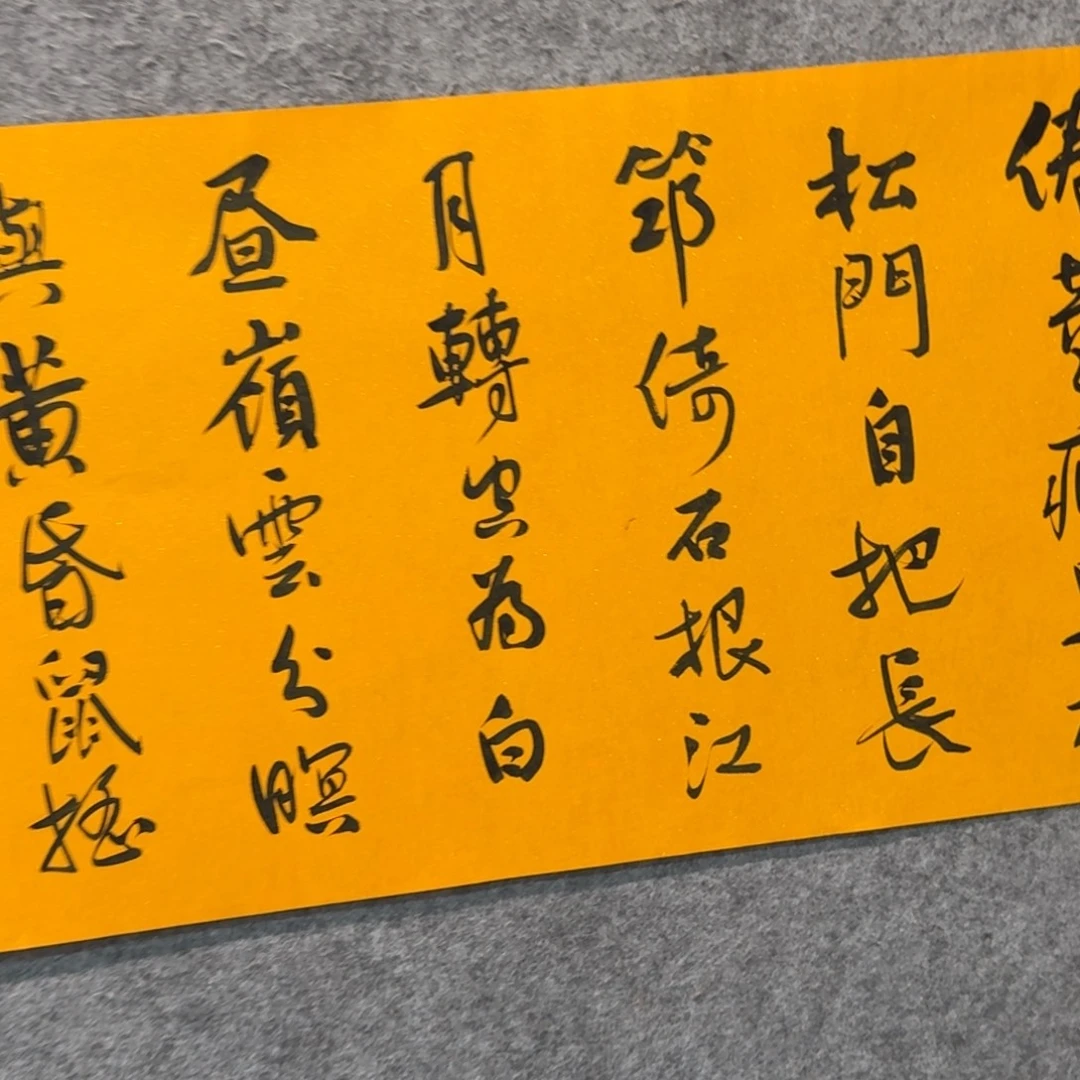 松門自把長
筇倚石根江
月轉空為白
昼嶺雲分暝
與黃昏鼠搖